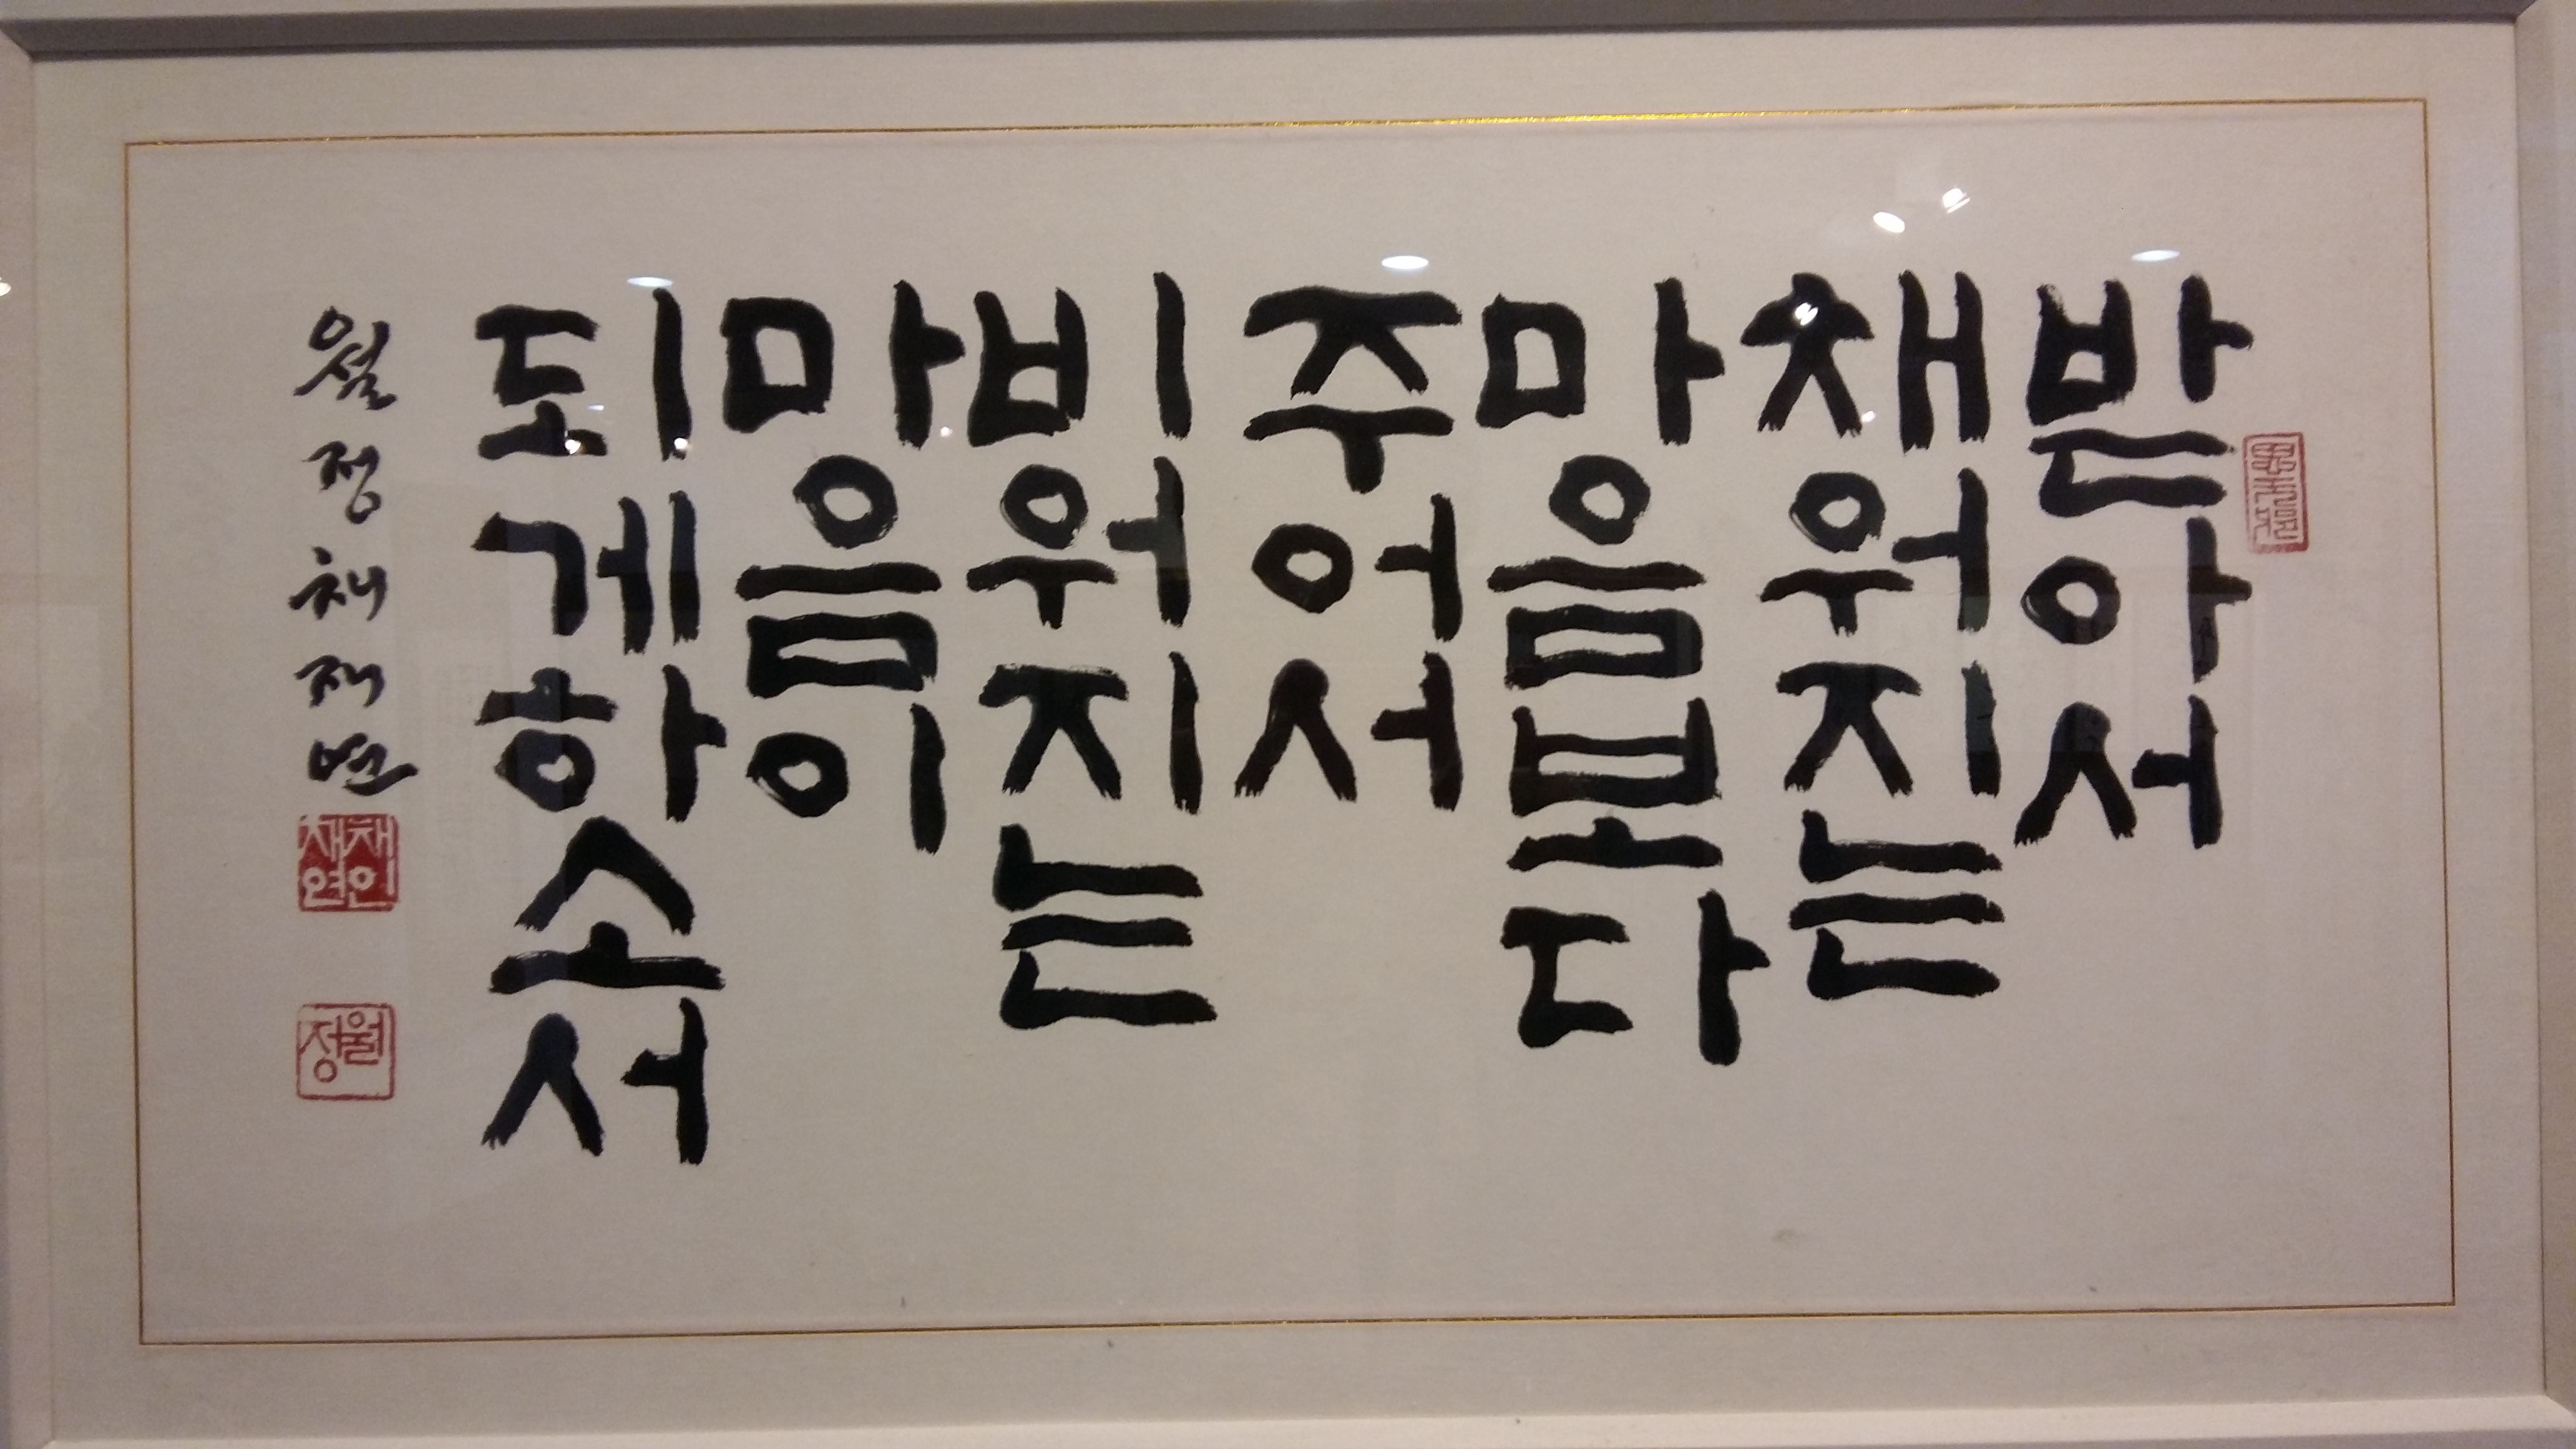 받아서
채워지는
마음보다
주어서
비워지는
마음이
되게하소서
월정 채재연
채인
재연
월정